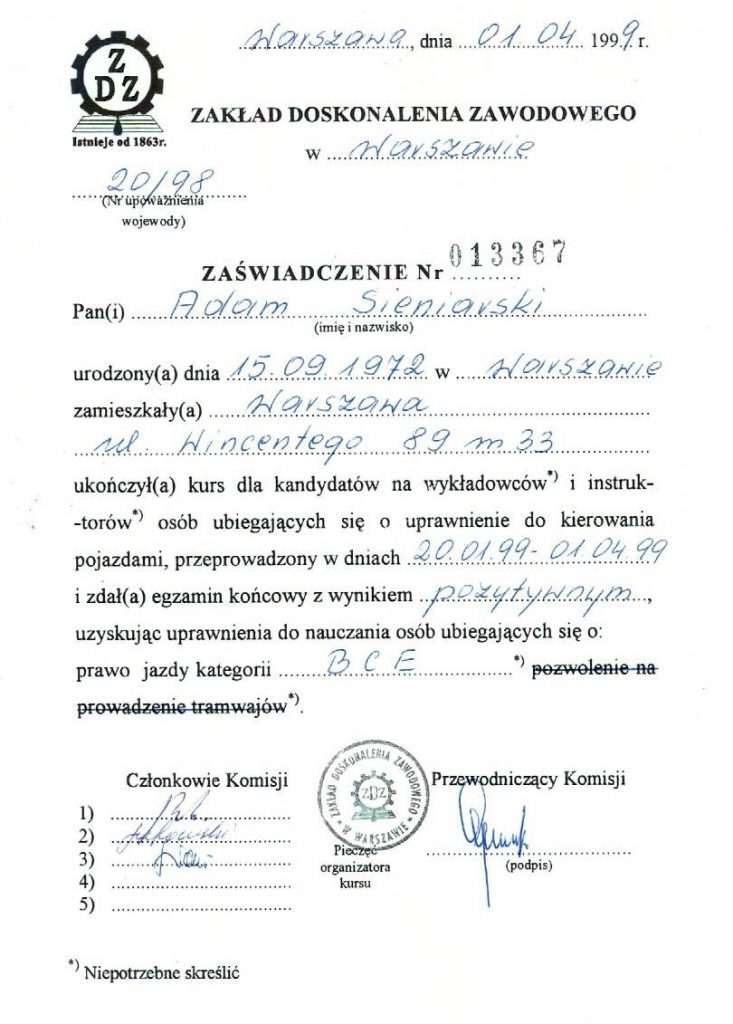 Warszawa, dnia 01 04 1999 r.
Z
D Z
Istnieje od 1863r.
ZAKŁAD DOSKONALENIA ZAWODOWEGO
w Warszawie
20/98
(Nr upoważnienia
wojewody)
ZAŚWIADCZENIE Nr 013367
Pan(i) Adam Sieniarski
(imię i nazwisko)
urodzony(a) dnia 15.09.1972 w Warszawie
zamieszkały(a) Warszawa
ul. Wincentego 89 m 33
ukończył(a) kurs dla kandydatów na wykładowców*) i instruk-
-torów*) osób ubiegających się o uprawnienie do kierowania
pojazdami, przeprowadzony w dniach 20.01.99-01.04.99
i zdał(a) egzamin końcowy z wynikiem pozytywnym,
uzyskując uprawnienia do nauczania osób ubiegających się o:
prawo jazdy kategorii B C E *) pozwolenie na
prowadzenie tramwajów*).
Członkowie Komisji
1)
2)
3)
4)
5)
ZAKŁAD DOSKONALENIA ZAWODOWEGO
ZDZ
W WARSZAWIE
Pieczęć
organizatora
kursu
Przewodniczący Komisji
(podpis)
*) Niepotrzebne skreślić